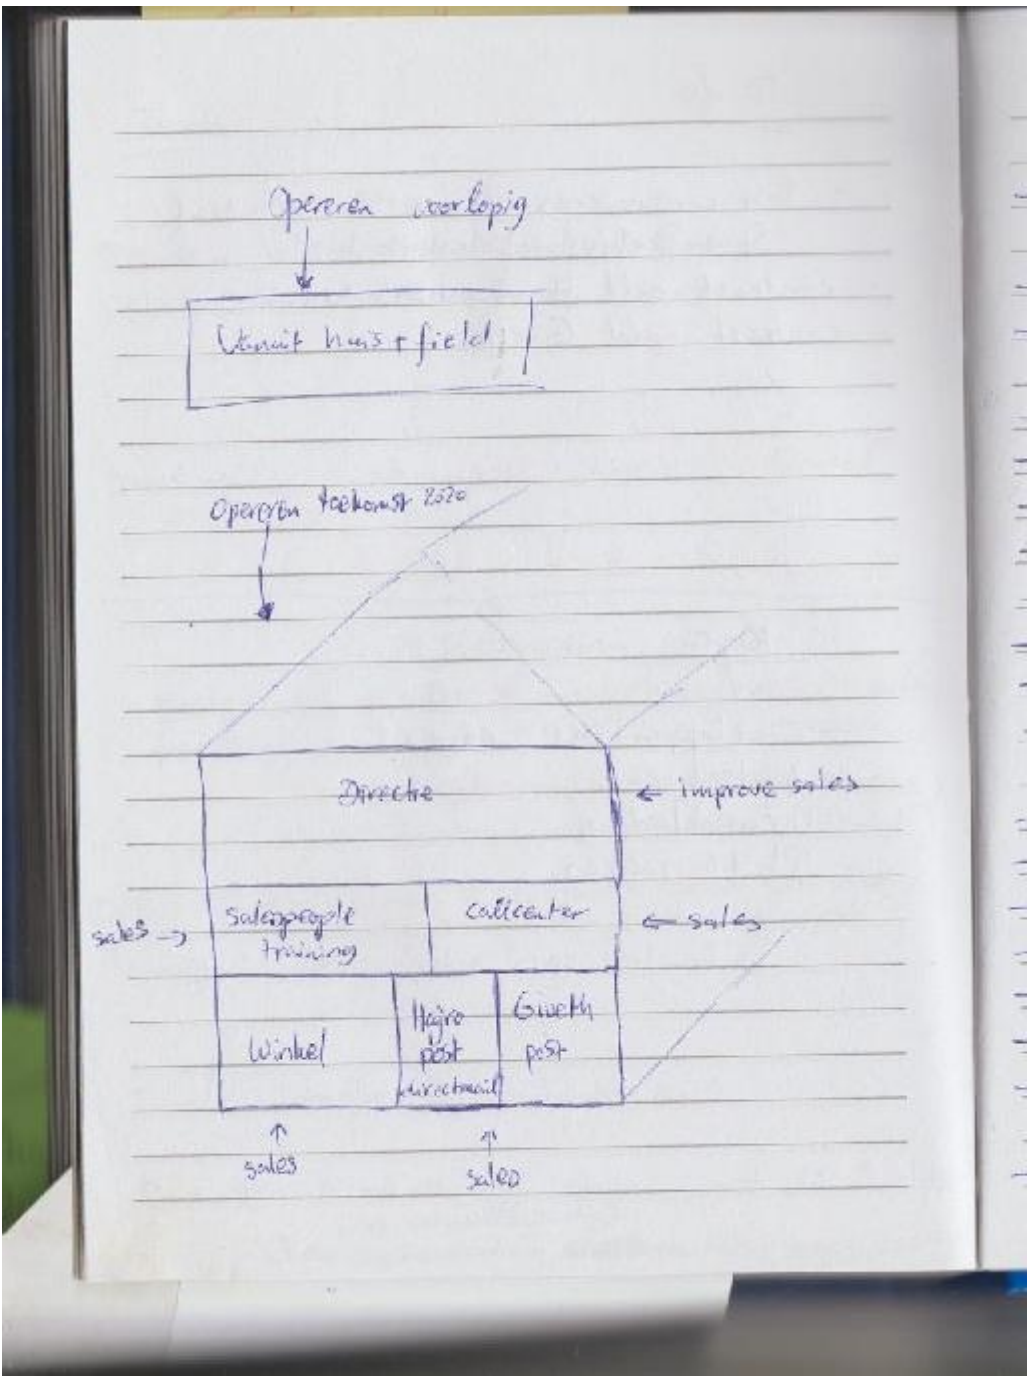 Opereren voorlopig
Vanuit huis + field
Opereren toekomst 2020
Directie
← improve sales
salespeople
training
callcenter
sales →
← sales
Winkel
post
directmail
post
↑
sales
↑
sales